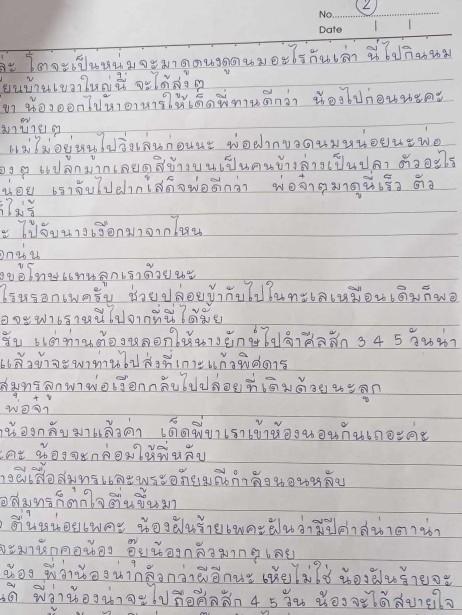 2
No.
Date
ล่ะ โตจะเป็นหนุ่มจะมาดูดนงดูดนมอะไรกันเล่า นี่ไปกินนม
ยันบ้านเขวาใหญ่นี้ จะได้สูงๆ
ขา น้องออกไปหาอาหารให้เด็ดพี่ทานดีกว่า น้องไปก่อนนะคะ
มาบ๊ายๆ
แม่ไม่อยู่หนูไปวิ่งเล่นก่อนนะ พ่อฝากขวดนมหน่อยนะพ่อ
องๆ แปลกมากเลยดูสิข้างบนเป็นคนข้างล่างเป็นปลา ตัวอะไร
น่อย เราจับไปฝากเสด็จพ่อดีกว่า พ่อจ๋าๆมาดูนี่เร็ว ตัว
ก็ไม่รู้
ะ ไปจับนางเงือกมาจากไหน
อกนู่น
งขอโทษแทนลูกเราด้วยนะ
ไรหรอกเพอรับ ช่วยปล่อยข้ากับไปในทะเลเหมือนเดิมก็พอ
อจะพาเราหนีไปจากที่นี่ได้มั้ย
รับ แต่ท่านต้องหลอกให้นางยักษ์ไปจำศีลสัก 3 4 5 วันน่า
แล้วข้าจะพาท่านไปส่งที่เกาะแก้วพิศดาร
สมุทรลูกพาพ่อเงือกกลับไปปล่อยที่เดิมด้วยนะลูก
พ่อจ๋า
น้องกลับมาแล้วค่า เด็ดพี่ขาเราเข้าห้องนอนกันเถอะค่ะ
ะคะ น้องจะกล่อมให้พี่หลับ
างผีเสื้อสมุทรและพระอภัยมณีกำลังนอนหลับ
อสมุทรก็ตกใจตื่นขึ้นมา
ตื่นหน่อยเพคะ น้องฝันร้ายเพคะฝันว่ามีปีศาสน่าตาน่า
จะมาหักคอน้อง อุ๊ยน้องกลัวมากๆเลย
น้อง พี่ว่าน้องน่ากลัวกว่าผีอีกนะ เห้ยไม่ใช่ น้องฝันร้ายจะ
นดี พี่ว่าน้องน่าจะไปถือศีลสัก 4 5 วัน น้องจะได้สบายใจ